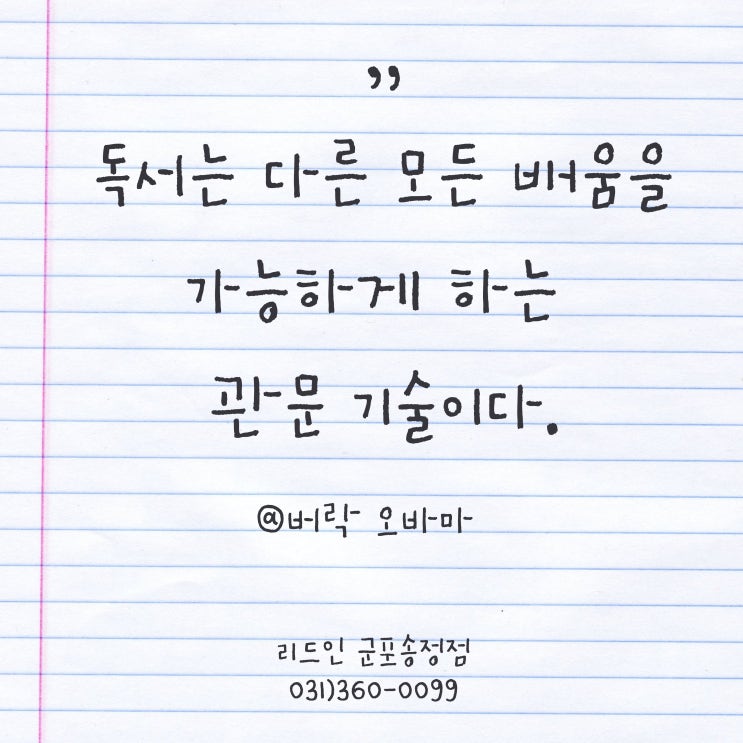 ”
독서는 다른 모든 배움을
가능하게 하는
관문 기술이다.
@버락 오바마
리드인 군포송정점
031)360-0099